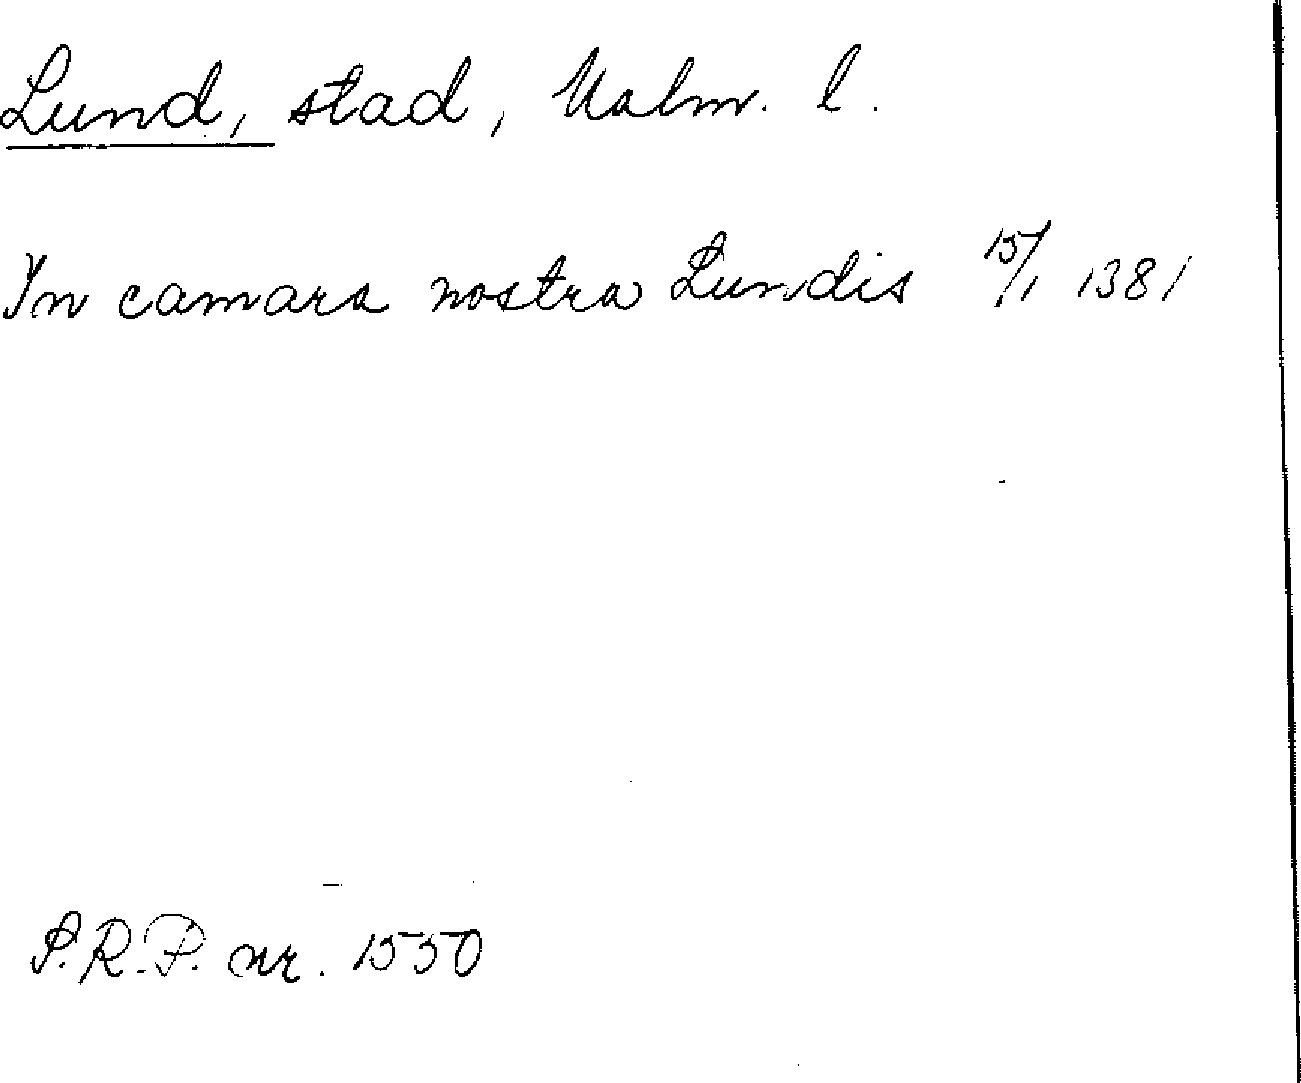 Lund, stad, Malm. l.
In camara nostra Lundis 15/1 1381
S.R.P. nr. 1550